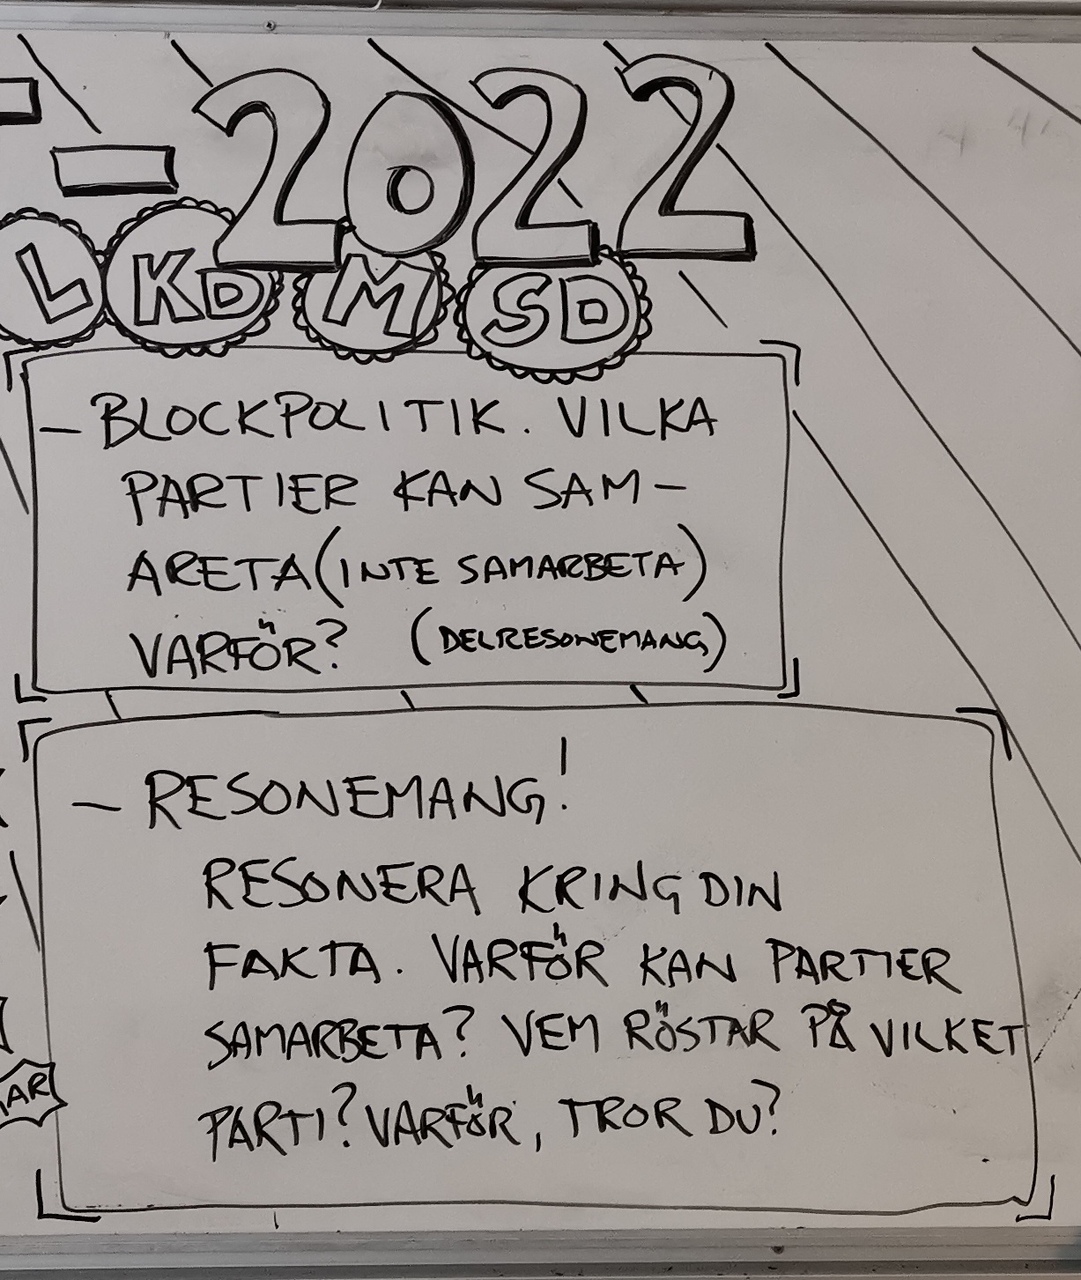 - 2022
L KD M SD
- BLOCKPOLITIK. VILKA
PARTIER KAN SAM-
ARETA (INTE SAMARBETA)
VARFÖR? (DELRESONEMANG)
- RESONEMANG!
RESONERA KRING DIN
FAKTA. VARFÖR KAN PARTIER
SAMARBETA? VEM RÖSTAR PÅ VILKET
PARTI? VARFÖR, TROR DU?
AR